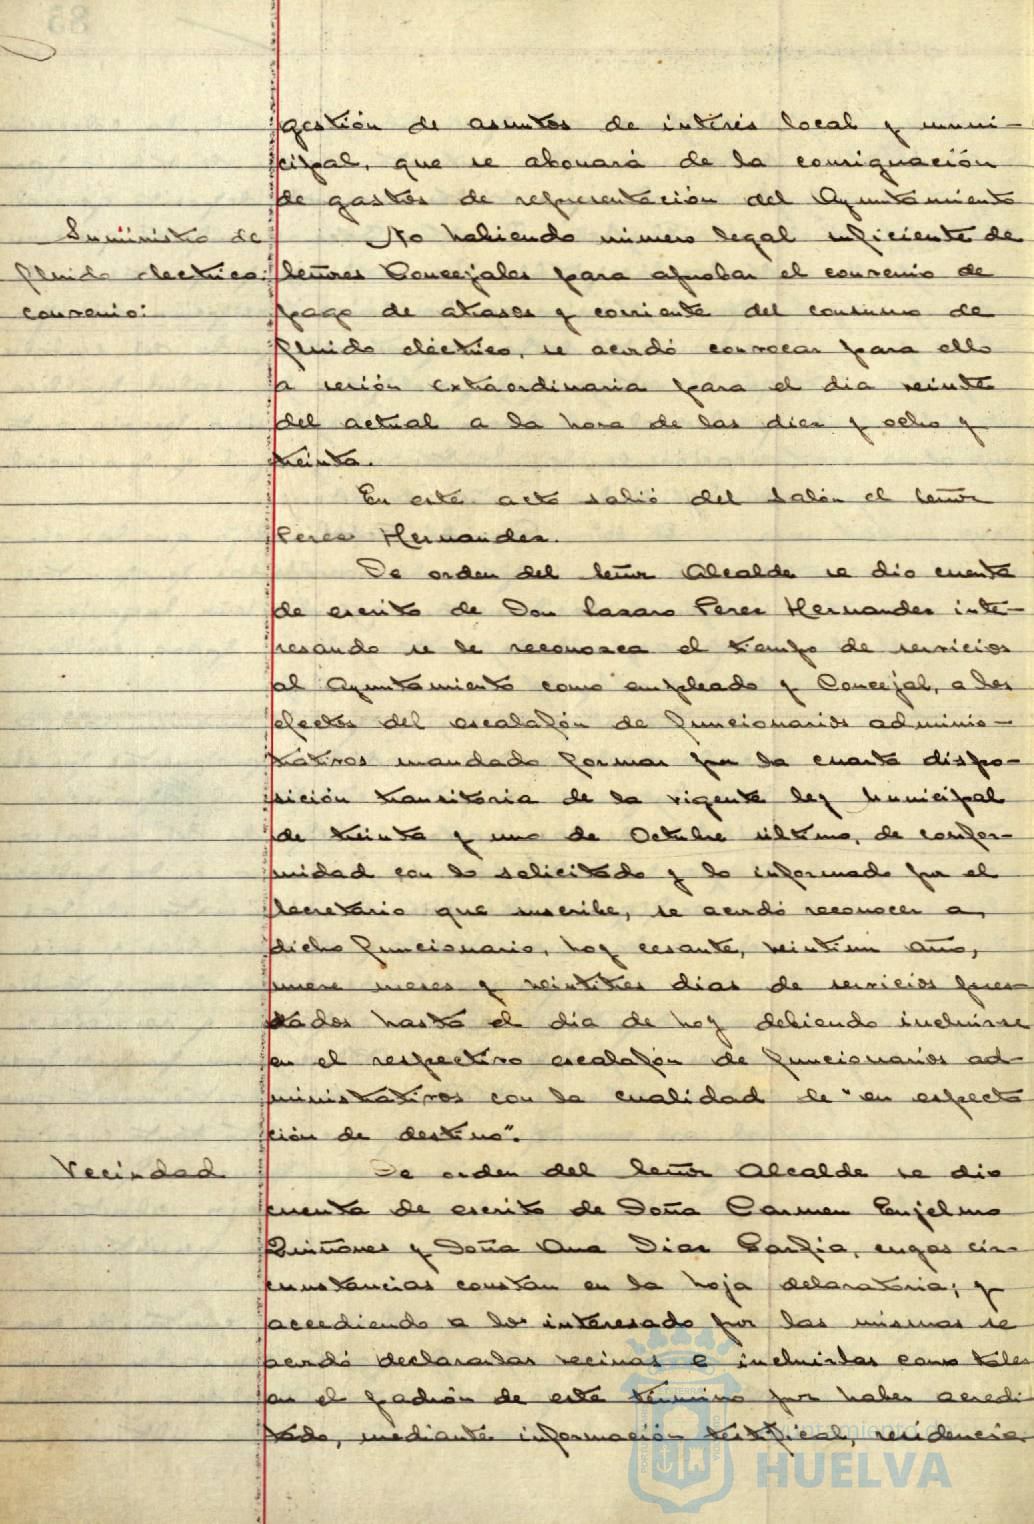 gestión de asuntos de interés local y muni-
cipal, que se abonará de la consignación
de gastos de representación del Ayuntamiento
Suministro de
fluido electrico:
convenio:
No habiendo número legal suficiente de
Señores Concejales para aprobar el convenio de
pago de atrasos y corriente del consumo de
fluido eléctrico, se acordó convocar para ello
a sesión extraordinaria para el dia veinte
del actual a la hora de las diez y ocho y
treinta.
En este acto salió del Salón el Señor
Perez Hernandez.
De orden del Señor Alcalde se dio cuenta
de escrito de Don Lazaro Perez Hernandez inte-
resando se le reconozca el tiempo de servicios
al Ayuntamiento como empleado y Concejal, a los
efectos del escalafón de funcionarios adminis-
trativos mandado formar por la cuarta dispo-
sición transitoria de la vigente ley Municipal
de treinta y uno de Octubre último, de confor-
midad con lo solicitado y lo informado por el
Secretario que suscribe, se acordó reconocer a
dicho funcionario, hoy cesante, veintiun año,
nueve meses y veintitres dias de servicios pres-
tados hasta el día de hoy debiendo incluirse
en el respectivo escalafón de funcionarios ad-
ministrativos con la cualidad de "en especta
ción de destino".
Vecindad
De orden del Señor Alcalde se dio
cuenta de escrito de Doña Carmen Enjelmo
Quiñones y Doña Ana Diaz Garfia, cuyas cir-
cunstancias constan en la hoja declaratoria; y
accediendo a lo interesado por las mismas se
acordó declararlas vecinas e incluirlas como tales
en el padrón de este término por haber acredi-
tado, mediante información testifical, residencia
Ayuntamiento de
HUELVA